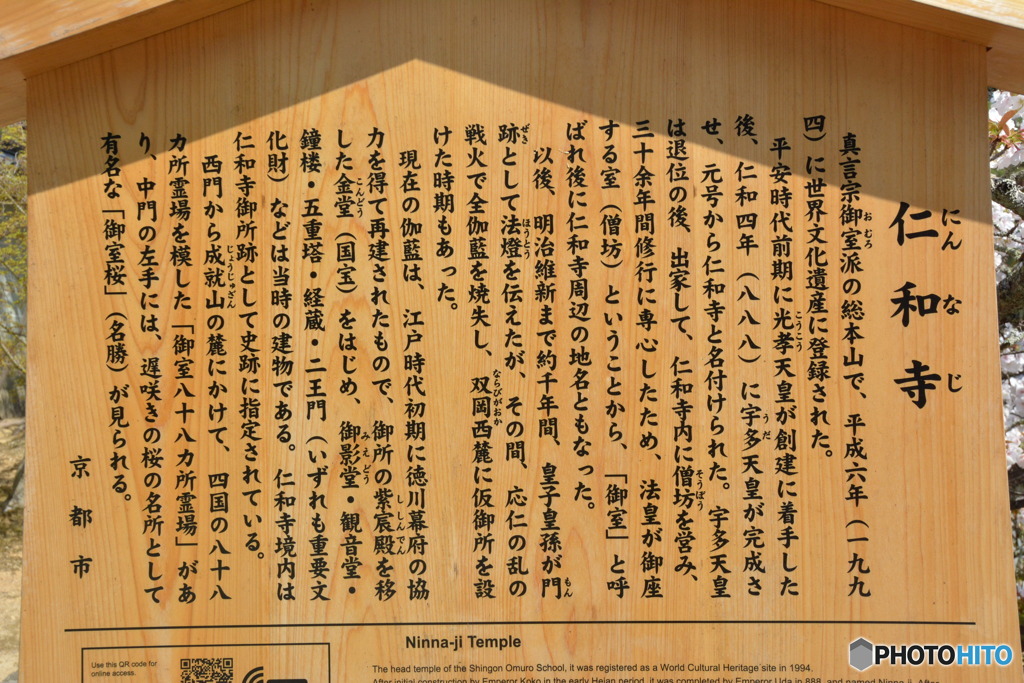 仁和寺
にんなじ
真言宗御室派の総本山で、平成六年（一九九
おむろ
四）に世界文化遺産に登録された。
平安時代前期に光孝天皇が創建に着手した
こうこう
後、仁和四年（八八八）に宇多天皇が完成さ
うだ
せ、元号から仁和寺と名付けられた。宇多天皇
は退位の後、出家して、仁和寺内に僧坊を営み、
そうぼう
三十余年間修行に専心したため、法皇が御座
する室（僧坊）ということから、「御室」と呼
ばれ後に仁和寺周辺の地名ともなった。
以後、明治維新まで約千年間、皇子皇孫が門
もん
跡として法燈を伝えたが、その間、応仁の乱の
ぜき
ほうとう
戦火で全伽藍を焼失し、双岡西麓に仮御所を設
ならびがおか
けた時期もあった。
現在の伽藍は、江戸時代初期に徳川幕府の協
力を得て再建されたもので、御所の紫宸殿を移
ししんでん
した金堂（国宝）をはじめ、御影堂・観音堂・
こんどう
みえどう
鐘楼・五重塔・経蔵・二王門（いずれも重要文
化財）などは当時の建物である。仁和寺境内は
仁和寺御所跡として史跡に指定されている。
西門から成就山の麓にかけて、四国の八十八
じょうじゅざん
カ所霊場を模した「御室八十八カ所霊場」があ
り、中門の左手には、遅咲きの桜の名所として
有名な「御室桜」（名勝）が見られる。
京都市
Ninna-ji Temple
Use this QR code for
online access.
The head temple of the Shingon Omuro School, it was registered as a World Cultural Heritage site in 1994.
After initial construction by Emperor Koko in the early Heian period, it was completed by Emperor Uda in 888, and named Ninna-ji. After
PHOTOHITO